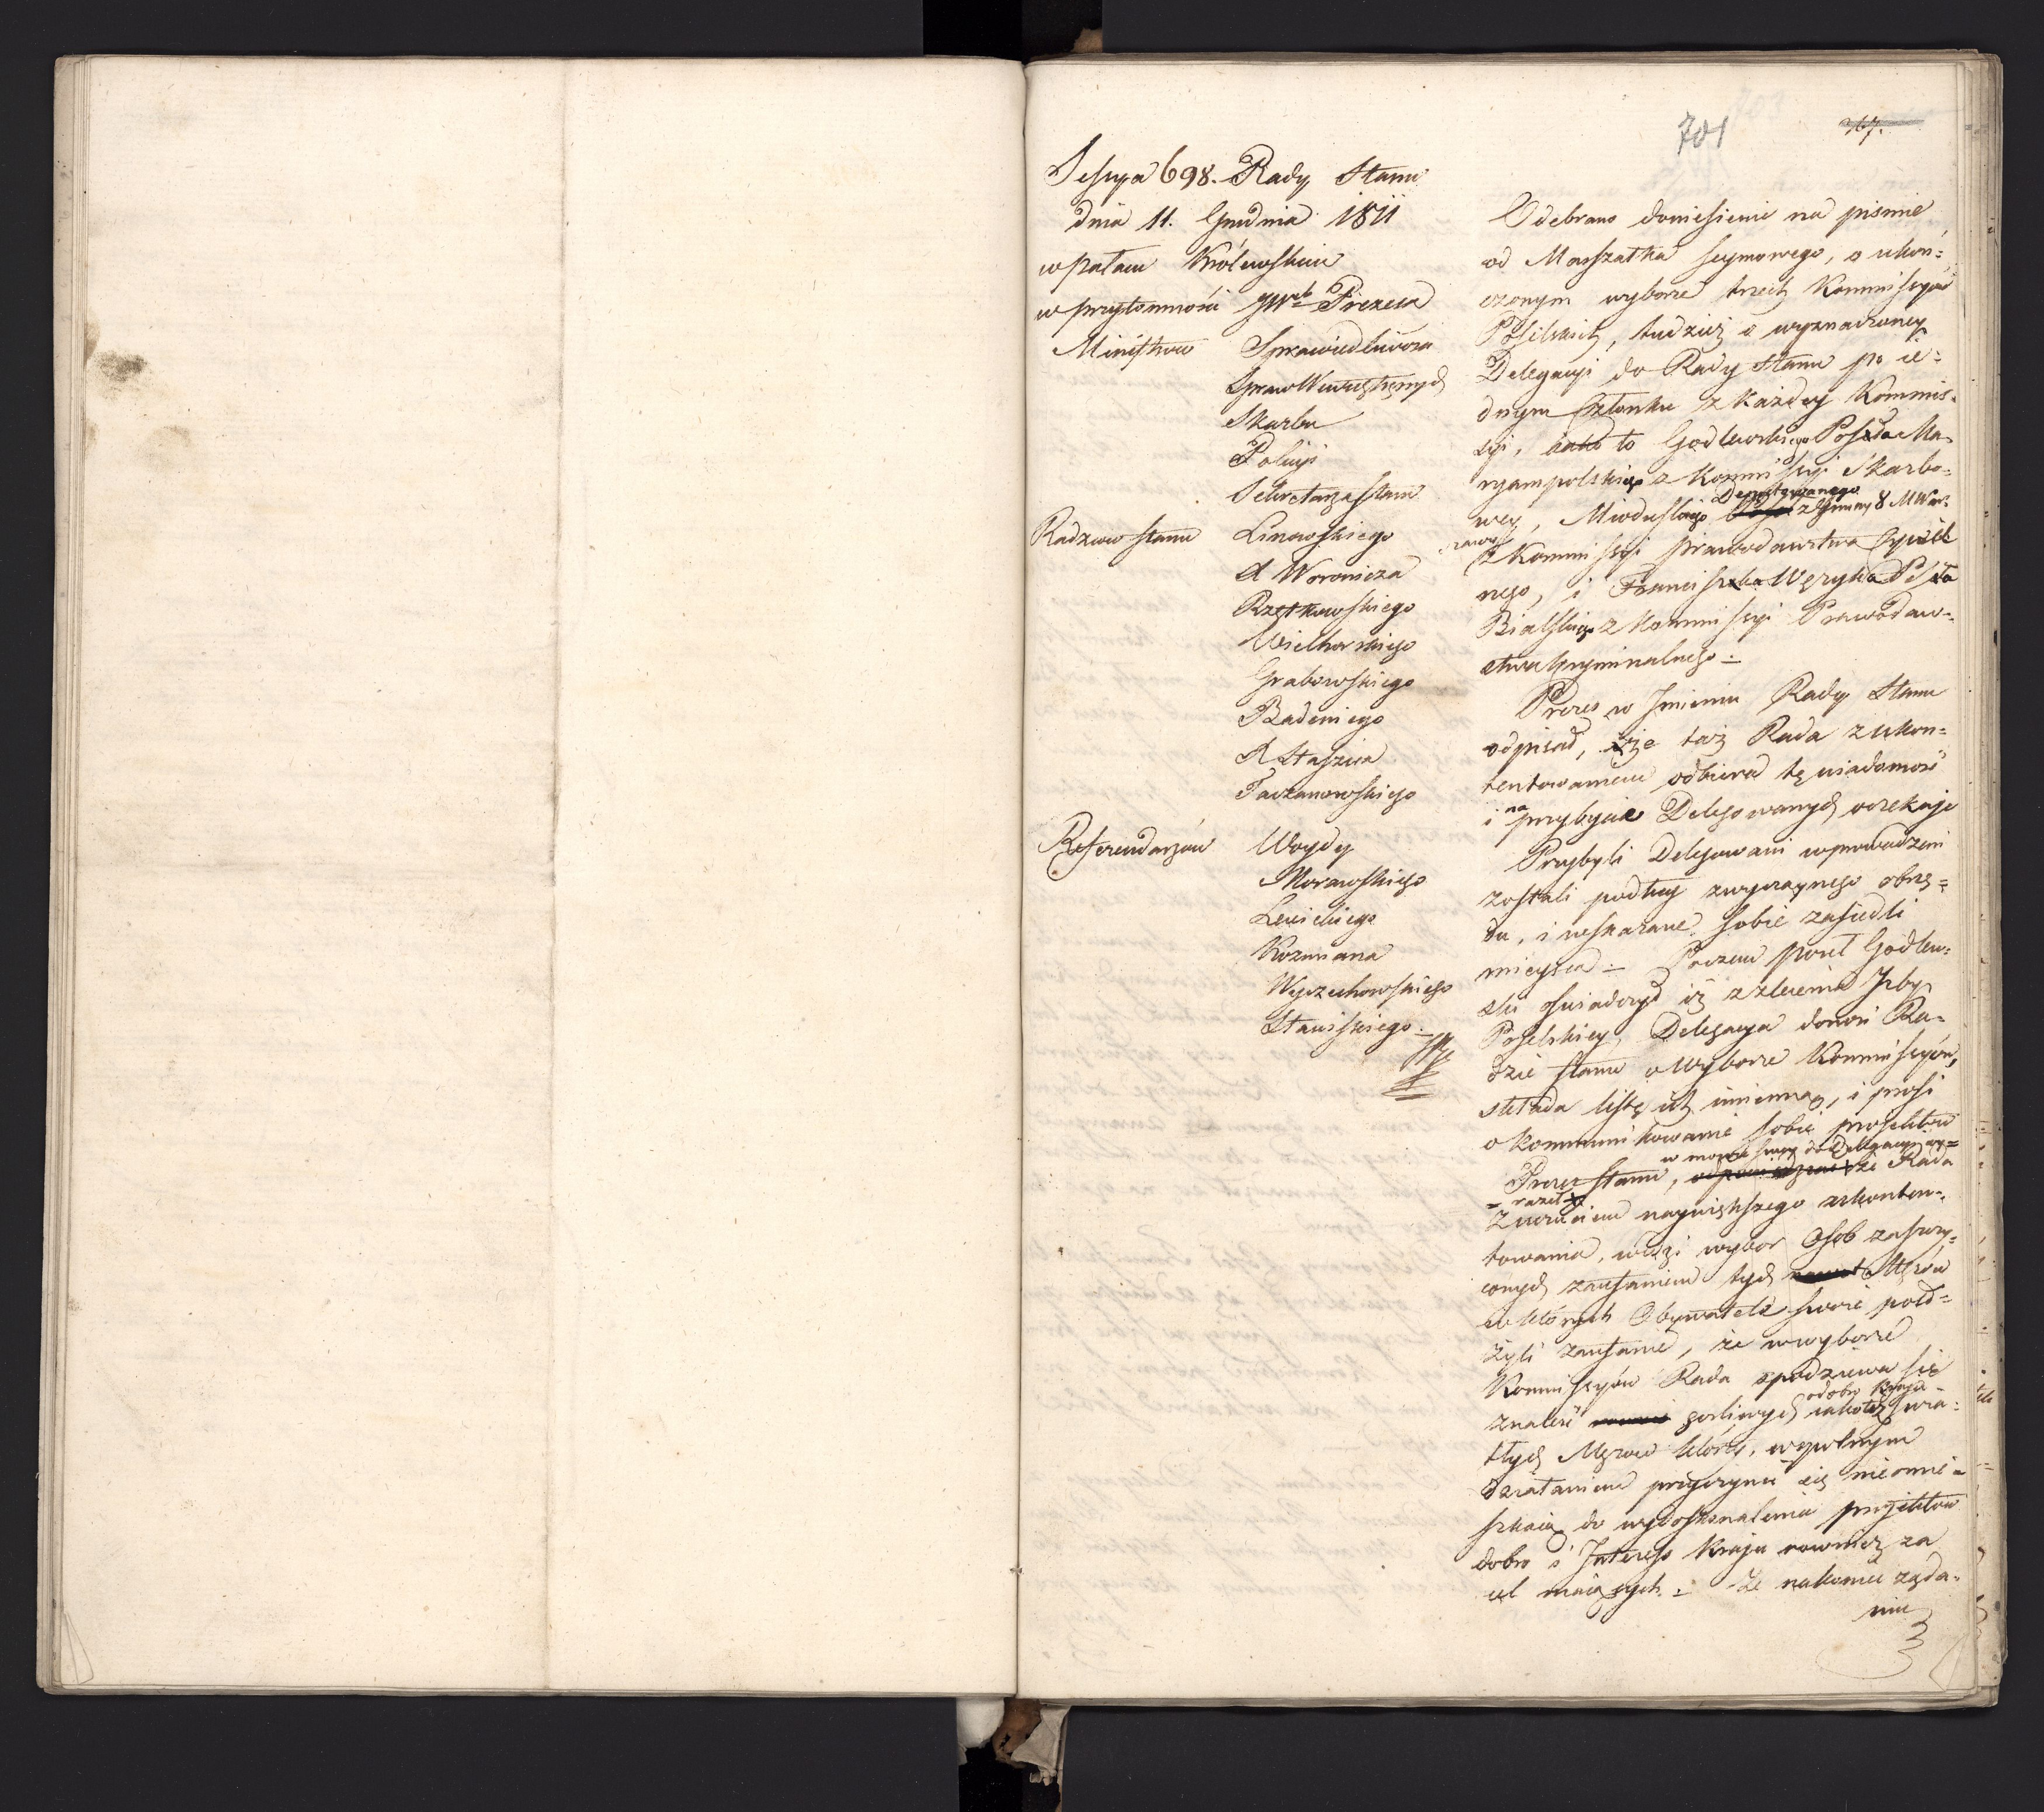 701
Sessya 698. Rady Stanu
dnia 11. Grudnia 1811
w Pałacu Królewskim
w przytomności JW Prezesa
Ministrów Sprawiedliwości
Spraw Wewnętrznych
Skarbu
Policyi
Sekretarza Stanu
Radzców Stanu Linowskiego
X Woronicza
Rzętkowskiego
Wielhorskiego
Grabowskiego
Badeniego
X Staszica
Taczanowskiego
Referendarzów Woydy
Morawskiego
Lewickiego
Kozmiana
Wyczechowskiego
Stawiskiego
Odebrano doniesienie na pismie
od Marszałka seymowego, o ukoń=
czonym wyborze trzech Kommissyów
Poselskich, tudzież o wyznaczoney
Delegacyi do Rady Stanu po ie=
dnym Członku z każdey Kommis=
syi, iako to Godlewskiego Posła Ma=
ryampolskiego z Kommissyi Skarbo=
Deputowanego
wey, Mioduskiego z Gminy 8 M War=
=szawy
z Kommissyi prawodawstwa Cywil
nego, i Franciszka Węzyka Posła
Bialskiego z Kommissyi Prawodaw=
stwa kryminalnego.=
Prezes w Jmieniu Rady Stanu
odpisał, iże taż Rada z ukon=
tentowaniem odbiera tę wiadomość
i na przybycie Delegowanych oczekuje
Przybyli Delegowani wprowadzeni
zostali podług zwyczaynego obrzę=
du, i wskazane sobie zasiedli
mieysca.= Poczem poseł Godlew=
ski oświadczył iż z zlecenia Jzby
Poselskiey, Delegacya donosi Ra=
dzie Stanu o wyborze Kommissyów,
składa listę ich imienną, i prosi
o kommunikowanie sobie proiektów
w mowie swey do Delegacyi wy=
Prezes Stanu, odpowiedział że Rada
=raził
z uczuciem naywiększego ukonten=
towania, widzi wybor Osob zaszczy=
conych zaufaniem tych Mężów
w których Obywatele swoie poło=
żyli zaufanie, że w wyborze
Kommissyów Rada spodziewa się
o dobro Kraju
znaleść gorliwych iakoteż świa=
tłych Mężów którzy, wspolnym
działaniem przyczynić się nieomie=
szkaią do wydoskonalenia proiektów
dobro i Jnteress Kraju rownież za
cel maiących.= Że nakoniec żąda=
niu